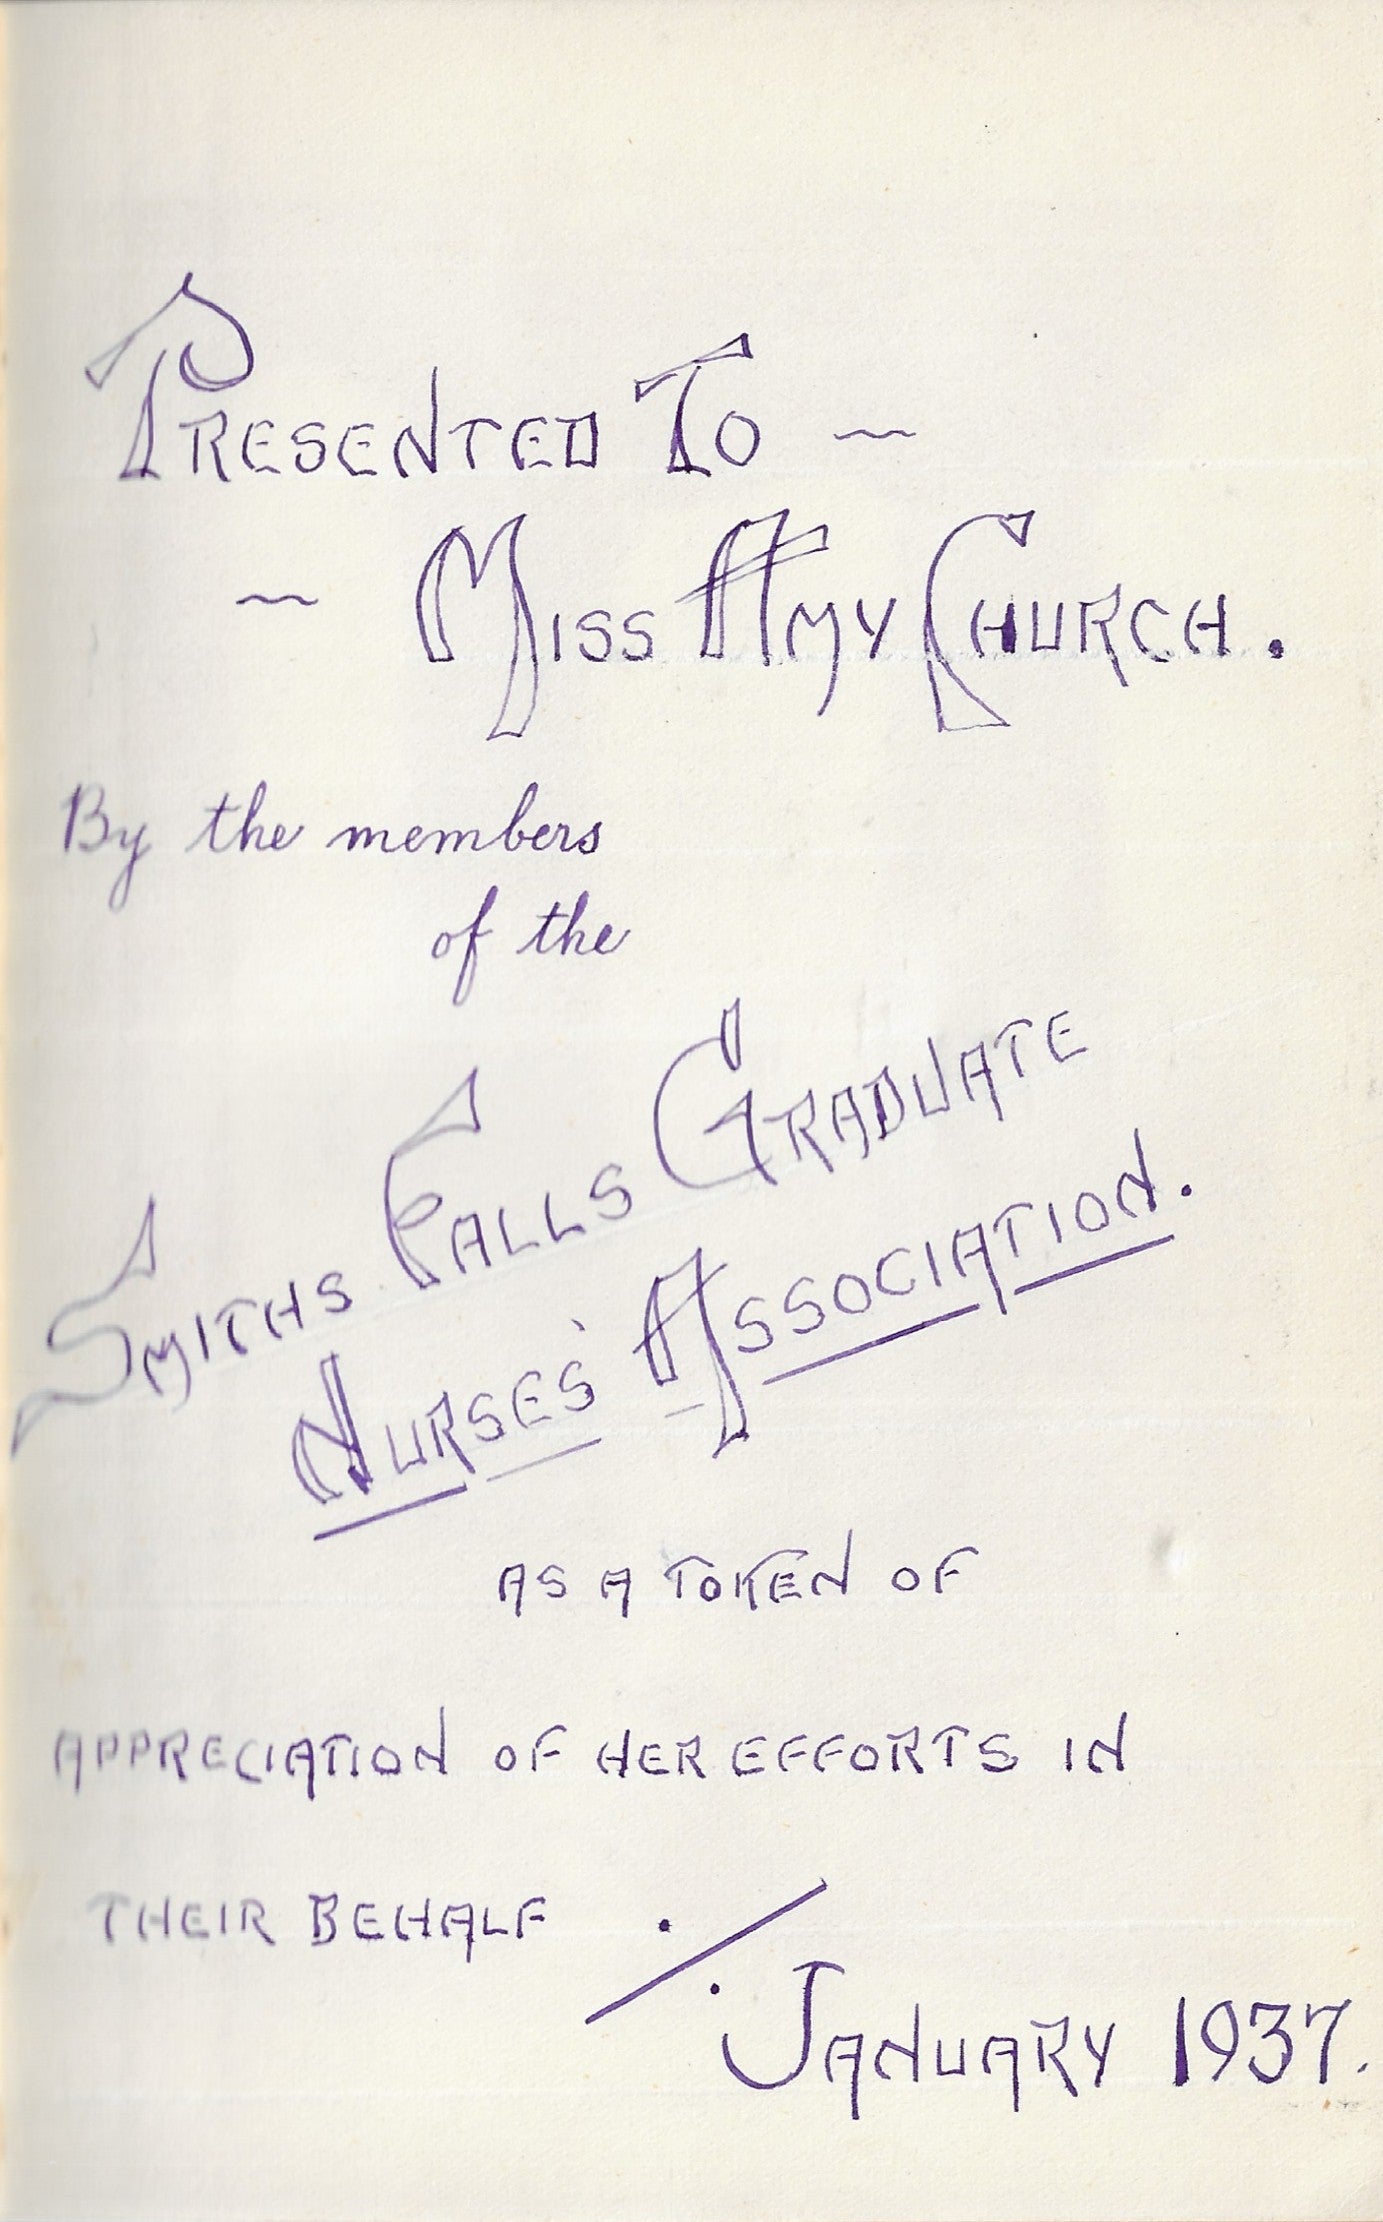 PRESENTED TO ~
~ MISS AMY CHURCH.
By the members
of the
SMITHS FALLS GRADUATE
NURSES' ASSOCIATION.
AS A TOKEN OF
APPRECIATION OF HER EFFORTS IN
THEIR BEHALF ./.
JANUARY 1937.